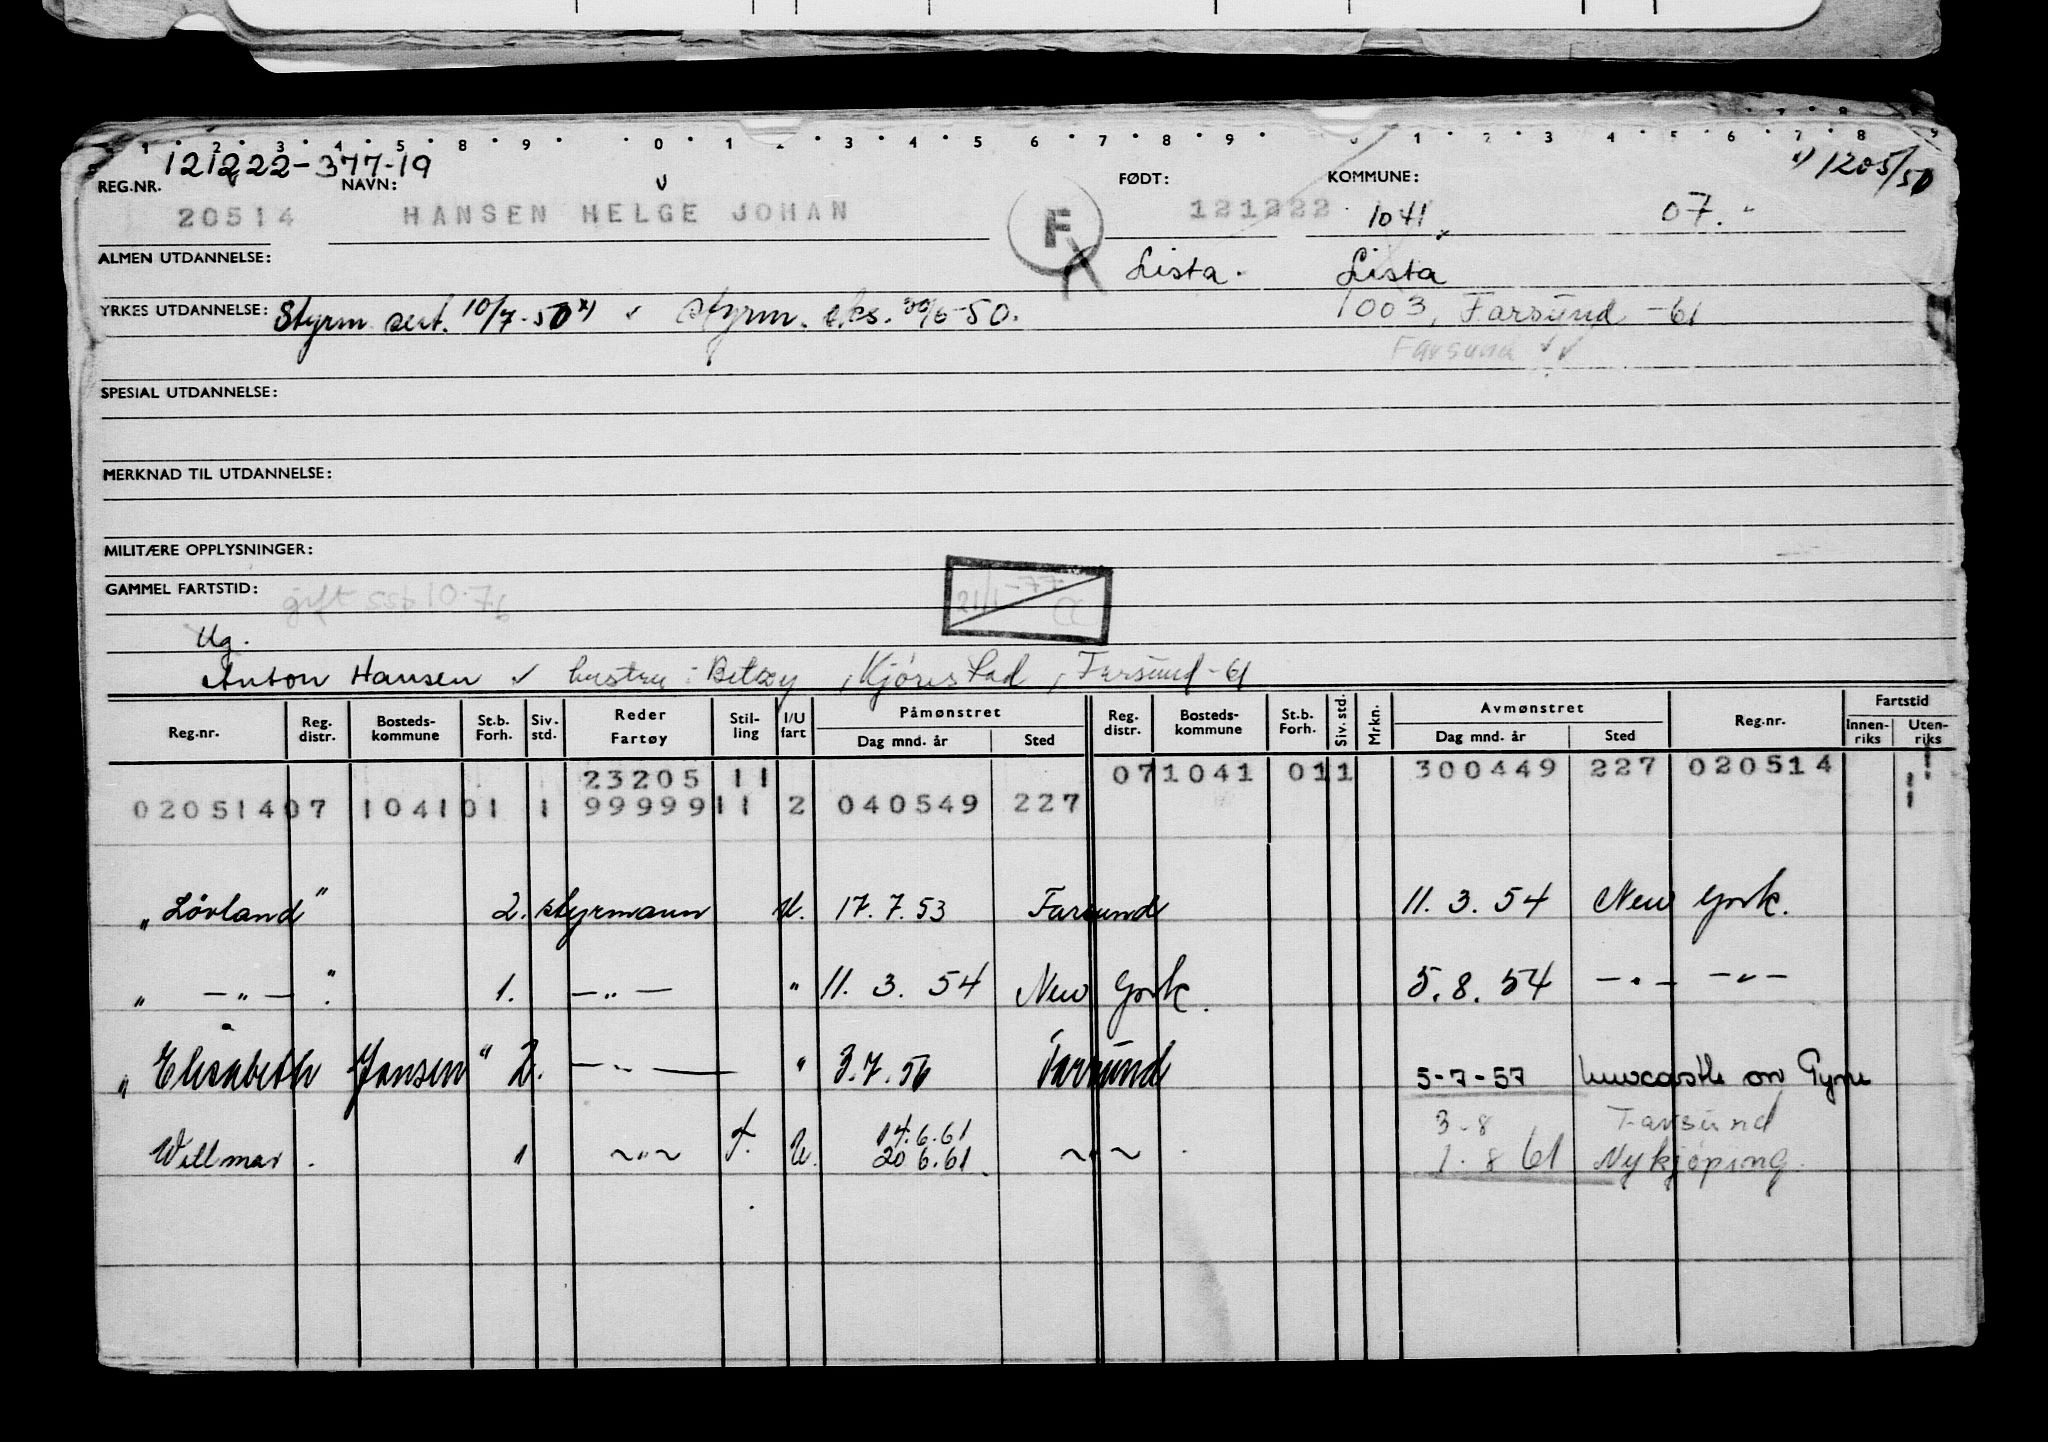 1 2 3 4 5 8 9 0 1 2 3 4 5 6 7 8 9 0 1 2 3 4 5 6 7 8 9
121222-377-19 1) 1205/50
REG.NR. NAVN: FØDT: KOMMUNE:
20514 HANSEN HELGE JOHAN F 121222 1041. 07.
ALMEN UTDANNELSE: Lista. Lista
YRKES UTDANNELSE: Styrm sert. 10/7-50 1) styrm. eks. 30/6-50. 1003, Farsund -61
Farsund
SPESIAL UTDANNELSE:
MERKNAD TIL UTDANNELSE:
MILITÆRE OPPLYSNINGER:
GAMMEL FARTSTID: gift ssb 10.76 21/1-77
Ug.
Anton Hansen hustru: Betzy, Kjørestad, Farsund-61
Reg.nr. Reg. distr. Bosteds-kommune St.b. Forh. Siv. std. Reder Fartøy Stil-ling I/U fart Påmønstret Dag mnd. år Sted Reg. distr. Bosteds-kommune St.b. Forh. Siv. std. Mrkn. Avmønstret Dag mnd. år Sted Reg.nr. Fartstid Innen-riks Uten-riks
23205 11 07 1041 01 1 300449 227 020514
020514 07 1041 01 1 99999 11 2 040549 227
"Lövland" 2. styrmann U. 17.7.53 Farsund 11.3.54 New York.
" —"— " 1. —"— " 11.3.54 New York. 5.8.54 —"— —"—
"Elisabeth Jansen" 2. —"— " 3.7.56 Farsund 5-7-57 Newcastle on Tyne
14.6.61 3-8 Farsund
Willmar. 1 ~"~ f. U. 20 6.61. ~"~ 1.8 61 Nykjøping.